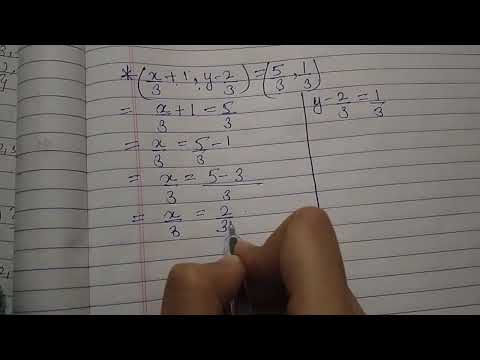 * (x/3 + 1, y - 2/3) = (5/3, 1/3)
= x/3 + 1 = 5/3
= x/3 = 5/3 - 1
= x/3 = 5 - 3/3
= x/3 = 2/3
y - 2/3 = 1/3